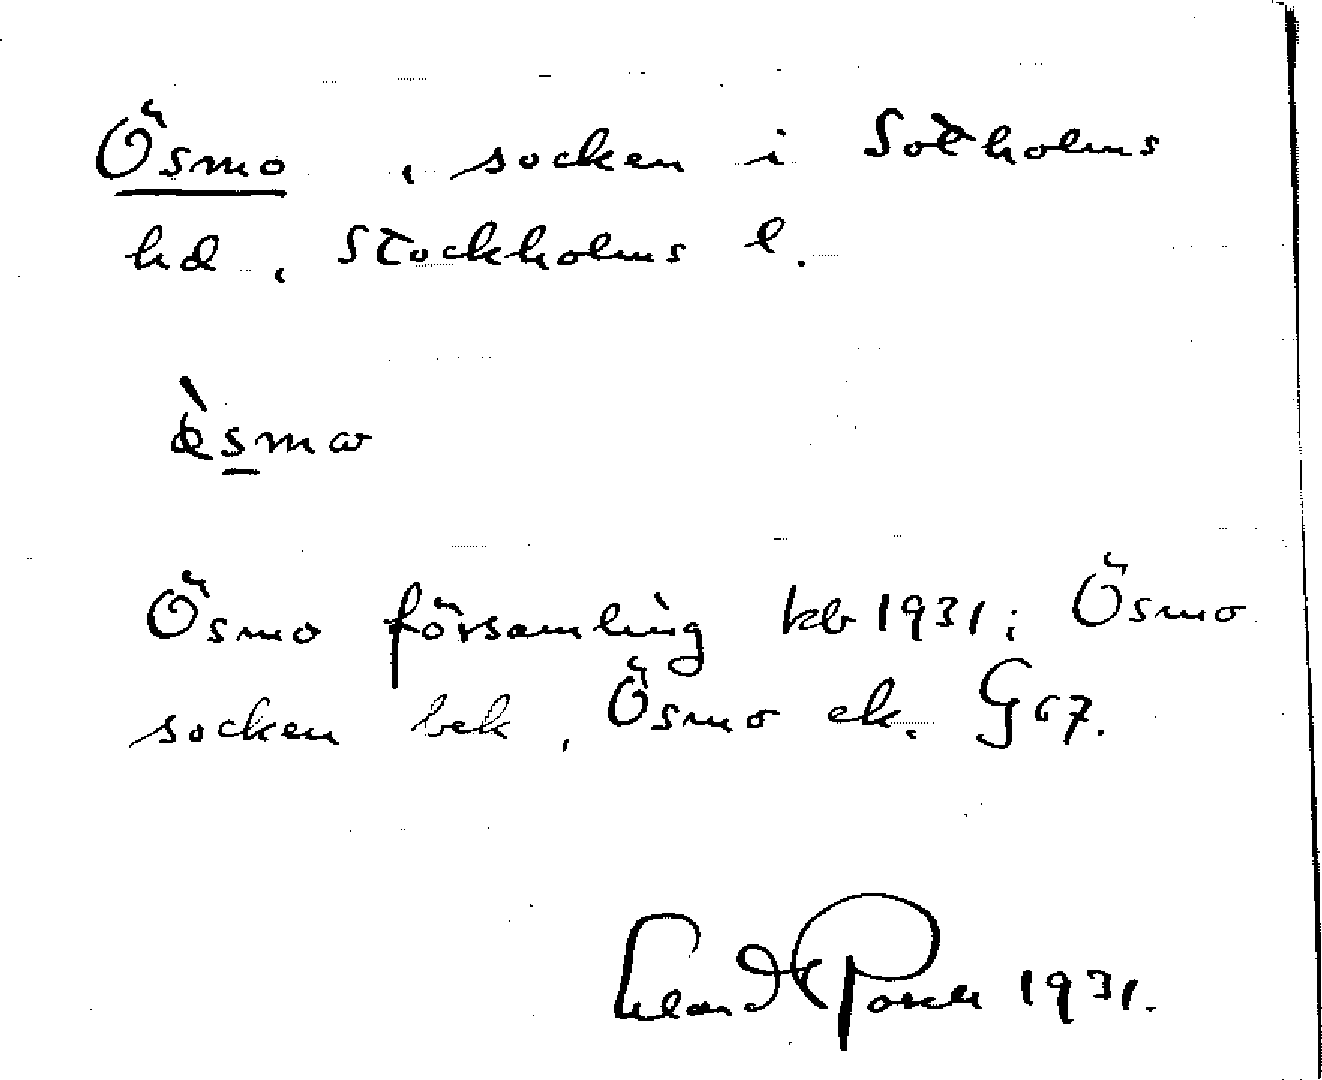 Ösmo, socken i Sotholms
hd, Stockholms l.
Ösmo församling kb 1931; Ösmo
socken bek, Ösmo ek. G 67.
1931.